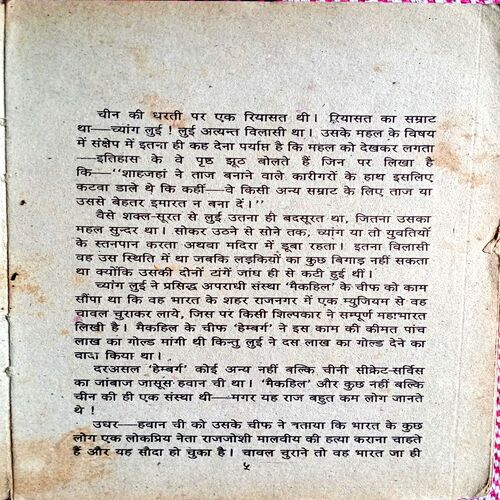 चीन की धरती पर एक रियासत थी। रियासत का सम्राट
था—च्यांग लुई ! लुई अत्यन्त विलासी था। उसके महल के विषय
में संक्षेप में इतना ही कह देना पर्याप्त है कि महल को देखकर लगता
—इतिहास के वे पृष्ठ झूठ बोलते हैं जिन पर लिखा है
कि—‘‘शाहजहां ने ताज बनाने वाले कारीगरों के हाथ इसलिए
कटवा डाले थे कि कहीं—वे किसी अन्य सम्राट के लिए ताज या
उससे बेहतर इमारत न बना दें।’’
वैसे शक्ल-सूरत से लुई उतना ही बदसूरत था, जितना उसका
महल सुन्दर था। सोकर उठने से सोने तक, च्यांग या तो युवतियों
के स्तनपान करता अथवा मदिरा में डूबा रहता। इतना विलासी
वह उस स्थिति में था जबकि लड़कियों का कुछ बिगाड़ नहीं सकता
था क्योंकि उसकी दोनों टांगें जांघ ही से कटी हुई थीं।
च्यांग लुई ने प्रसिद्ध अपराधी संस्था ‘मैकहिल’ के चीफ को काम
सौंपा था कि वह भारत के शहर राजनगर में एक म्युजियम से वह
चावल चुराकर लाये, जिस पर किसी शिल्पकार ने सम्पूर्ण महाभारत
लिखी है। मैकहिल के चीफ ‘हेम्बर्ग’ ने इस काम की कीमत पांच
लाख का गोल्ड मांगी थी किन्तु लुई ने दस लाख का गोल्ड देने का
वादा किया था।
दरअसल ‘हेम्बर्ग’ कोई अन्य नहीं बल्कि चीनी सीक्रेट-सर्विस
का जांबाज जासूस हवान ची था। ‘मैकहिल’ और कुछ नहीं बल्कि
चीन की ही एक संस्था थी—मगर यह राज बहुत कम लोग जानते
थे !
उधर—हवान ची को उसके चीफ ने बताया कि भारत के कुछ
लोग एक लोकप्रिय नेता राजजोशी मालवीय की हत्या कराना चाहते
हैं और यह सौदा हो चुका है। चावल चुराने तो वह भारत जा ही
५